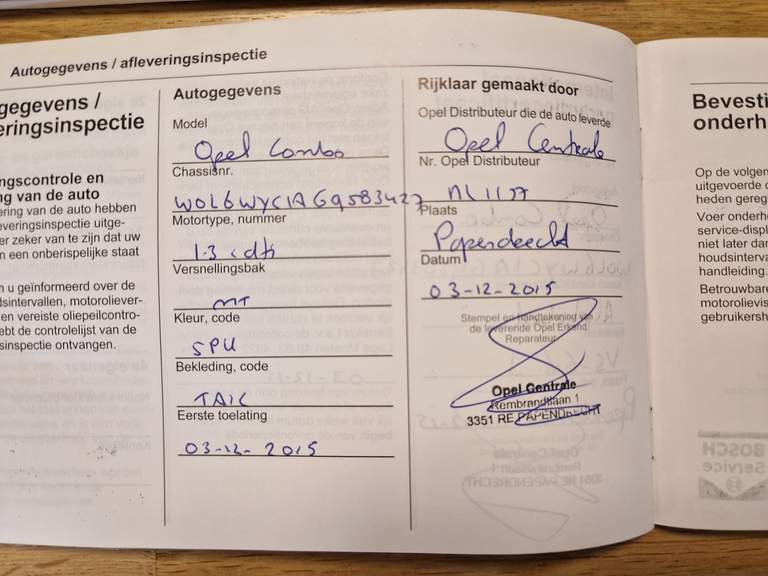 Autogegevens / afleveringsinspectie
gegevens /
eringsinspectie
ngscontrole en
ng van de auto
ering van de auto hebben
everingsinspectie uitge-
er zeker van te zijn dat uw
n een onberispelijke staat
n u geïnformeerd over de
dsintervallen, motoroliever-
en vereiste oliepeilcontro-
ebt de controlelijst van de
sinspectie ontvangen.
Autogegevens
Model
Opel Combo
Chassisnr.
WOL6WYC1AG9583427
Motortype, nummer
1.3 cdti
Versnellingsbak
MT
Kleur, code
5PU
Bekleding, code
TAIC
Eerste toelating
03-12-2015
Rijklaar gemaakt door
Opel Distributeur die de auto leverde
Opel Centrale
Nr. Opel Distributeur
Plaats
Papendrecht
Datum
03-12-2015
Stempel en handtekening van
de leverende Opel Erkend
Reparateur
Opel Centrale
Rembrandtlaan 1
3351 RE PAPENDRECHT
Bevesti
onderh
Op de volgen
uitgevoerde o
heden gereg
Voor onderho
service-displ
niet later dan
houdsinterva
handleiding.
Betrouwbare
motorolievis
gebruikersh
BOSCH
Service